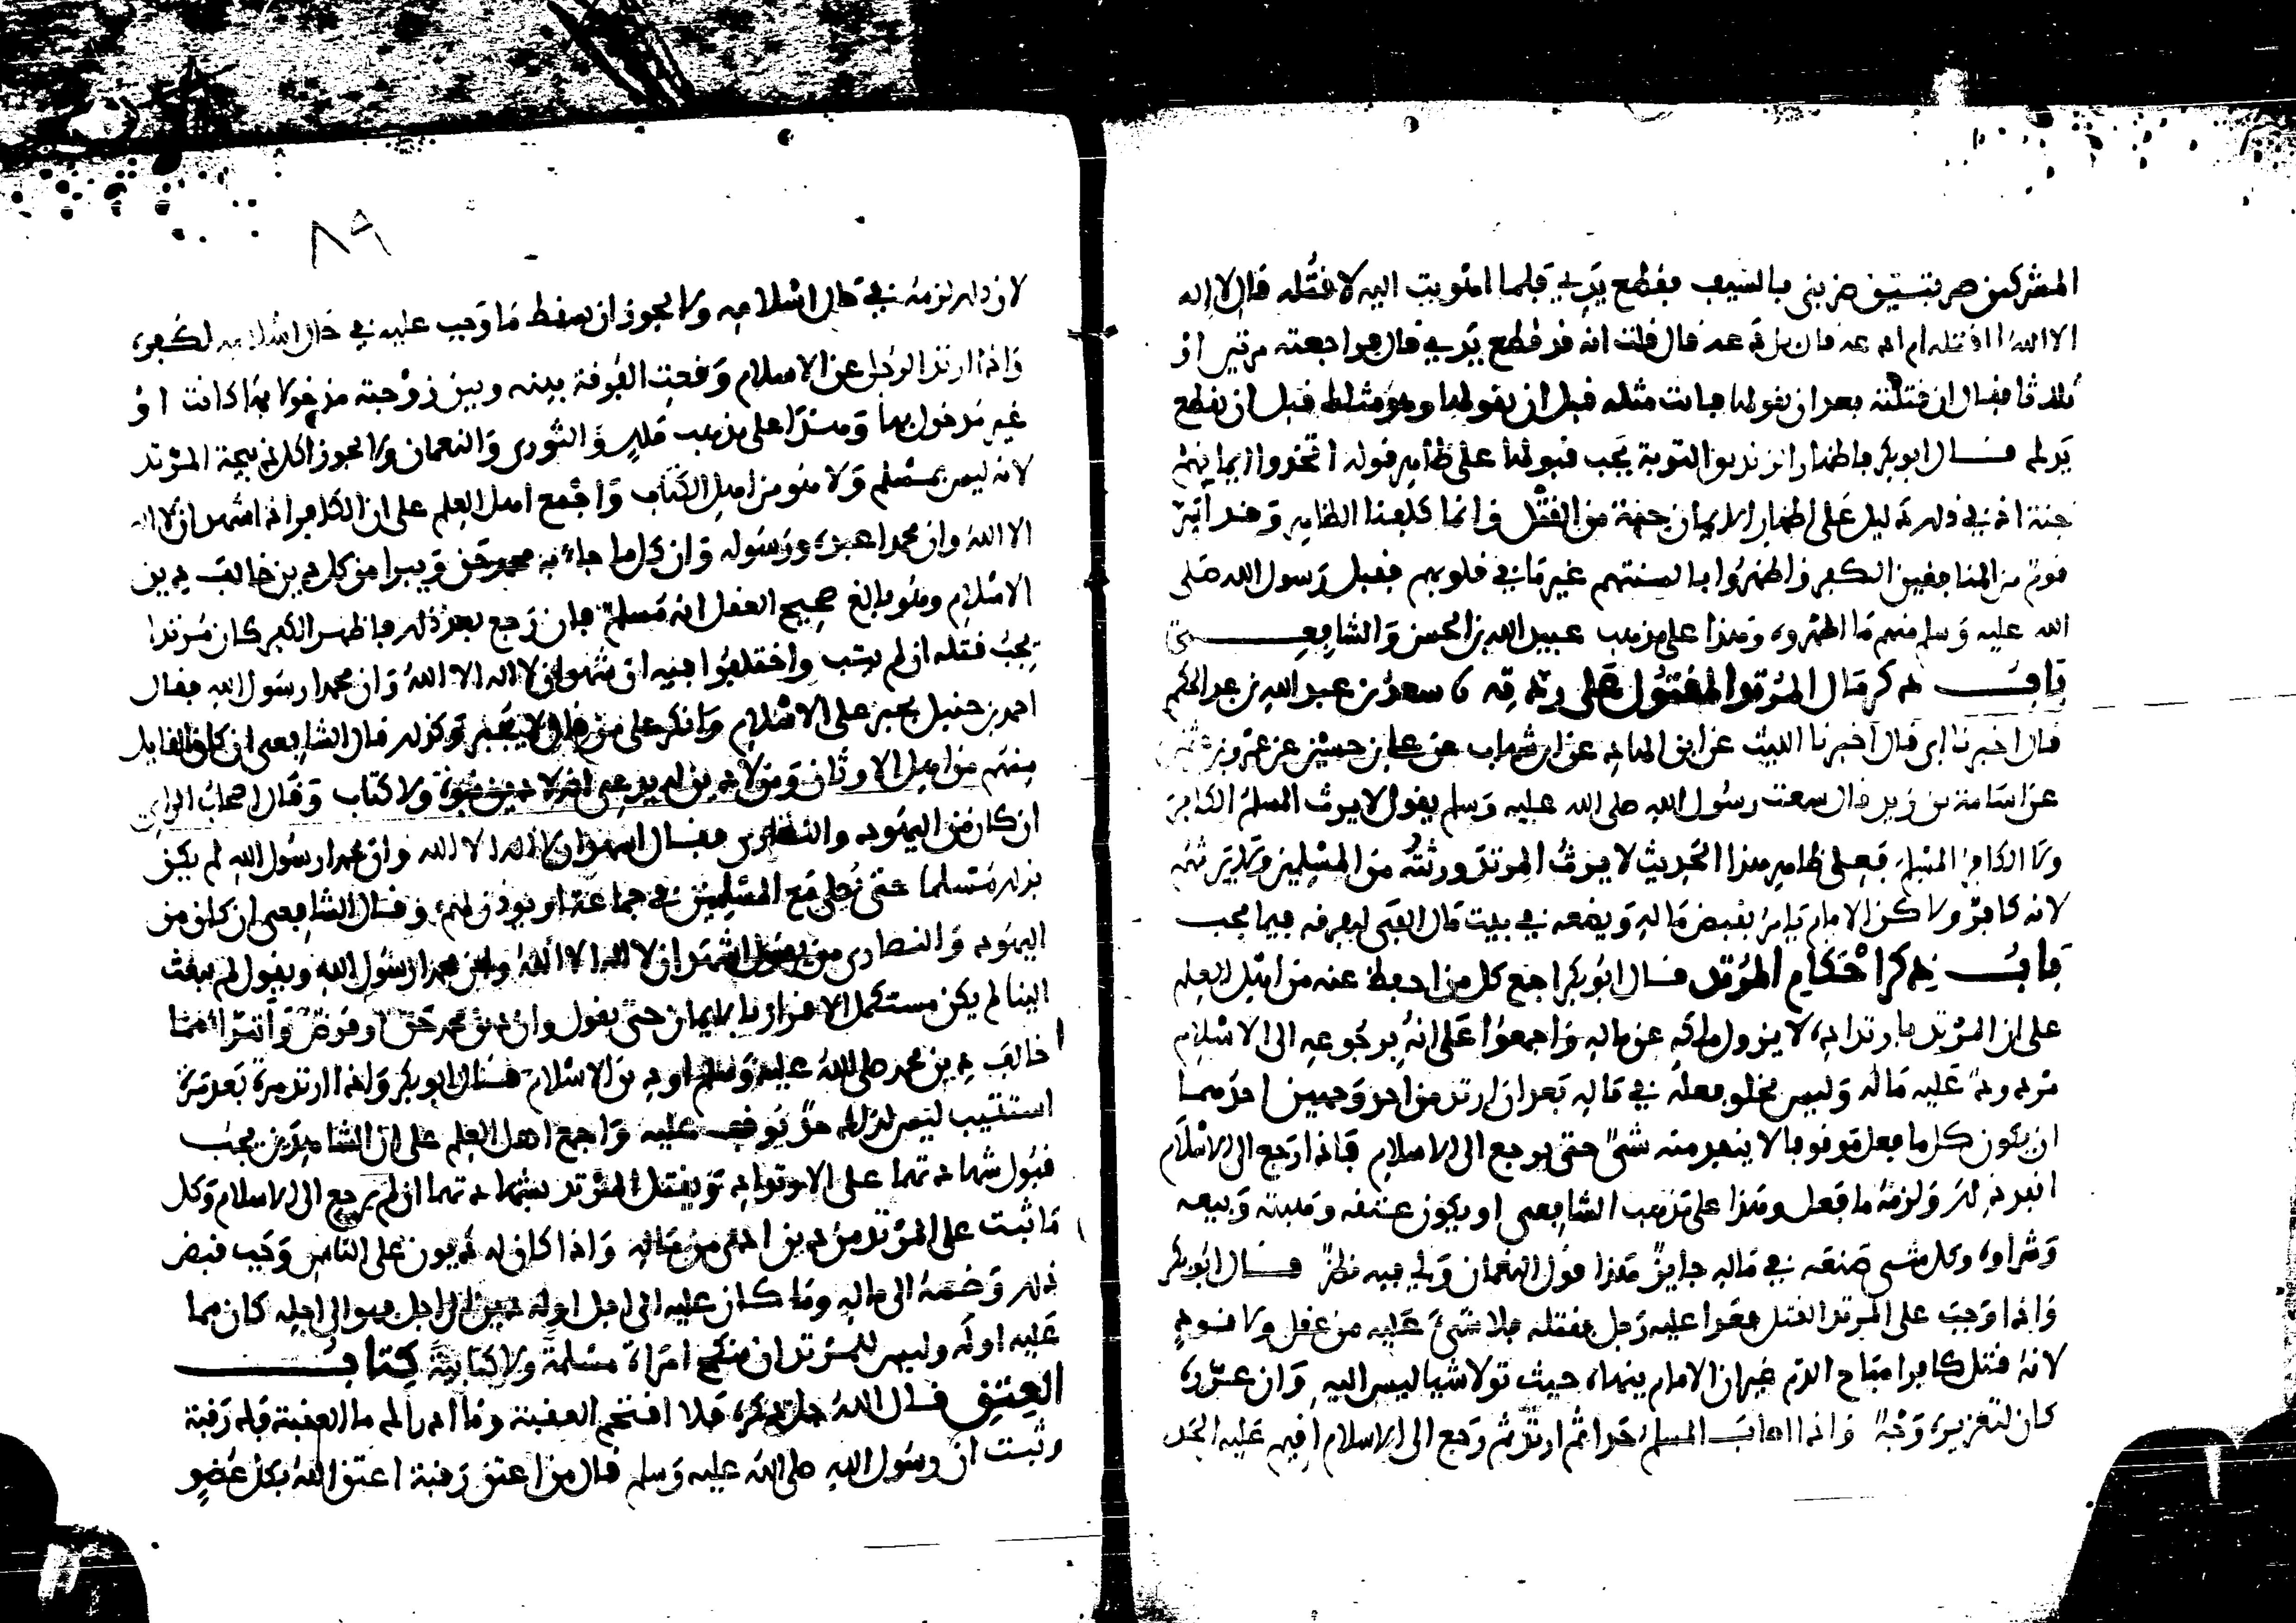 المشركين ضربتين ضربني بالسيف فقطع يدي فلما اهويت اليه لاقتله قال لا اله
الا الله ااقتله ام ادعه قال بل دعه قال قلت انه قد قطع يدي قال فراجعته مرتين او
ثلاثا فقال ان قتلته بعد ان يقولها فانت مثله قبل ان يقولها وهو مثلك قبل ان يقطع
يدك قـــال ابو بكر فاظهار الزنديق التوبة يجب قبولها على ظاهر قوله اتخذوا ايمانهم
جنة اذ في ذلك دليل على اظهار الايمان جنة من القتل وانما كلفنا الظاهر وقد اتى
قوم من المنافقين الكفر واظهروا بالسنتهم غير ما في قلوبهم فقبل رسول الله صلى
الله عليه وسلم منهم ما اظهروه وهذا على مذهب عبيد الله بن الحسن والشافعـــي
بابــــ ذكر مال المرتد المقتول على ردته نا سعد بن عبد الله بن عبد الحكم
قال اخبرنا ابي قال اخبرنا الليث عن ابن الهاد عن ابن شهاب عن علي بن حسين عن عمرو بن عثمان
عن اسامة بن زيد قال سمعت رسول الله صلى الله عليه وسلم يقول لا يرث المسلم الكافر
ولا الكافر المسلم فعلى ظاهر هذا الحديث لا يرث المرتد ورثته من المسلمين ولا يرثهم
لانه كافر ولاكن الامام يامر بقبض ماله ويضعه في بيت مال الفي ليصرفه فيما يجب
بابــــ ذكر احكام المرتد قـــال ابو بكر اجمع كل من احفظ عنه من اهل العلم
على ان المرتد بارتداده لا يزول ملكه عن ماله واجمعوا على انه برجوعه الى الاسلام
مردود عليه ماله وليس يخلو فعله في ماله بعد ان ارتد من احد وجهين احدهما
ان يكون كل ما فعل موقوفا لا ينفذ منه شي حتى يرجع الى الاسلام فاذا رجع الى الاسلام
انفذ ذلك ولزمه ما فعل وهذا على مذهب الشافعي او يكون عتقه وهبته وبيعه
وشراوه وكل شي صنعه في ماله جايز هذا قول النعمان ولي فيه نظر قـــال ابو بكر
واذا وجب على المرتد القتل فعدا عليه رجل فقتله فلا شي عليه من عقل ولا قود
لانه قتل كافرا مباح الدم غير ان الامام ينهاه حيث تولا شيا ليس اليه وان عزره
كان لتعزيره وجه واذا اصاب المسلم حدا ثم ارتد ثم رجع الى الاسلام اقيم عليه الحد
٨٩
لان ذلك لزمه في حال اسلامه ولا يجوز ان يسقط ما وجب عليه في حال اسلامه لكفره
واذا ارتد الرجل عن الاسلام وقعت الفرقة بينه وبين زوجته مدخولا بها كانت او
غير مدخول بها وهذا على مذهب ملك والثوري والنعمان ولا يجوز اكل ذبيحة المرتد
لانه ليس بمسلم ولا هو من اهل الكتاب واجمع اهل العلم على ان الكافر اذا شهد ان لا اله
الا الله وان محمدا عبده ورسوله وان كل ما جاء به محمد حق ويبرا من كل دين خالف دين
الاسلام وهو بالغ صحيح العقل انه مسلم فان رجع بعد ذلك فاظهر الكفر كان مرتدا
يجب قتله ان لم يتب واختلفوا فيه ان شهد ان لا اله الا الله وان محمدا رسول الله فقال
احمد بن حنبل يجبر على الاسلام وانكر على من قال لا يجبر وكذلك قال الشافعي ان كان القايل
منهم من اهل الاوثان ومن لا دين له يدعي انه لا دين نبوة ولا كتاب وقال اصحاب الراي
ان كان من اليهود والنصارى فقال اشهد ان لا اله الا الله وان محمدا رسول الله لم يكن
بذلك مسلما حتى يصلي مع المسلمين في جماعة او يوذن لهم وقال الشافعي ان كان من
اليهود والنصارى من يقول اشهد ان لا اله الا الله وان محمدا رسول الله ويقول لم يبعث
الينا لم يكن مستكمل الاقرار بالايمان حتى يقول وان دين محمد حق او فرض وابرا مما
خالف دين محمد صلى الله عليه وسلم او دين الاسلام قـــال ابو بكر واذا ارتد مرة بعد مرة
استتيب ليس لذلك حد يوقف عليه واجمع اهل العلم على ان الشاهدين يجب
قبول شهادتهما على الارتداد ويقتل المرتد بشهادتهما ان لم يرجع الى الاسلام وكل
ما ثبت على المرتد من دين ادي من ماله واذا كان له ديون على الناس وجب قبض
ذلك وضمه الى ماله وما كان عليه الى اجل او له دين الى اجل فهو الى اجله كان مما
عليه او له وليس للمرتد ان ينكح امراة مسلمة ولا كتابية كتابــــ
العتق قـــال الله جل ذكره فلا اقتحم العقبة وما ادراك ما العقبة فك رقبة
وثبت ان رسول الله صلى الله عليه وسلم قال من اعتق رقبة اعتق الله بكل عضو